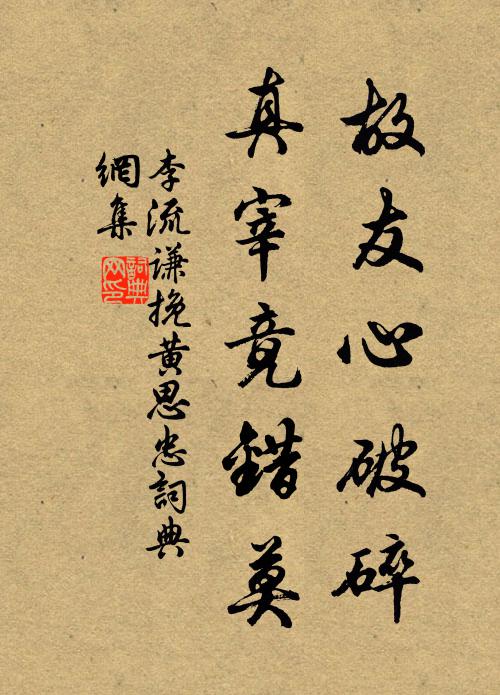 故友心破碎
真宰竟錯莫
李流谦挽黃思忠詞典
網集
詞典网印